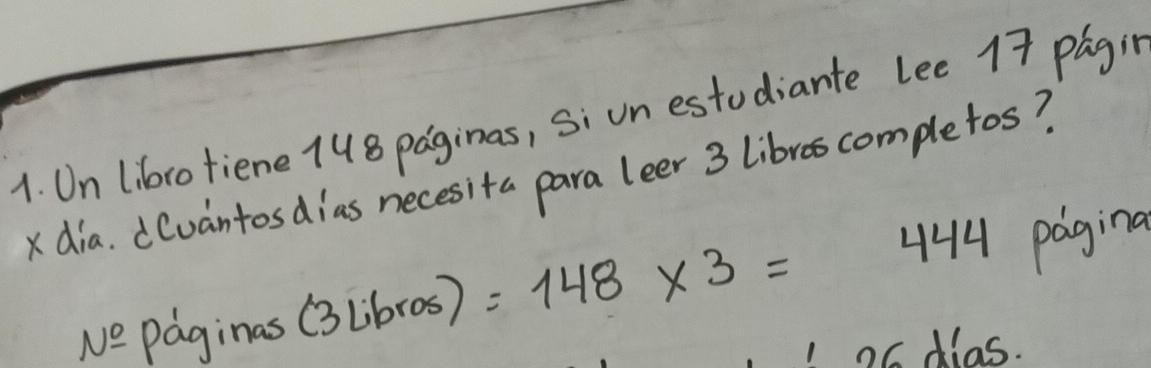 1. Un libro tiene 148 páginas, si un estudiante lee 17 págin
x día. ¿Cuántos días necesita para leer 3 libros completos?
Nº páginas (3 Libros) = 148 x 3 = 444 página
26 días.